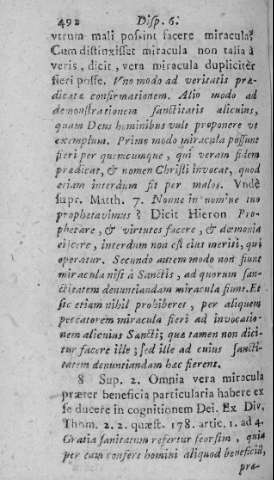 492 Disp. 6.
vtrum mali possint facere miracula?
Cum distinxisset miracula non talia à
veris, dicit, vera miracula dupliciter
fieri posse. Vno modo ad veritatis præ-
dicatæ confirmationem. Alio modo ad
demonstrationem sanctitatis alicuius,
quam Deus hominibus vult proponere vt
exemplum. Primo modo miracula possunt
fieri per quemcumque, qui veram fidem
prædicat, & nomen Christi invocat, quod
etiam interdum fit per malos. Vndè
supr. Matth. 7. Nonne in nomine tuo
prophetavimus? Dicit Hieron Pro-
phetare, & virtutes facere, & dæmonia
eijcere, interdum non est eius meriti, qui
operatur. Secundo autem modo non fiunt
miracula nisi à Sanctis, ad quorum san-
ctitatem denuntiandam miracula fiunt. Et
sic etiam nihil prohiberet, per aliquem
peccatorem miracula fieri ad invocatio-
nem alicuius Sancti; quæ tamen non dici-
tur facere ille; sed ille ad cuius sancti-
tatem denuntiandam hæc fierent.
8 Sup. 2. Omnia vera miracula
præter beneficia particularia habere ex
se ducere in cognitionem Dei. Ex Div,
Thom. 2. 2. quæst. 178. artic. 1. ad 4.
Gratia sanitatum refertur seorsim, quia
per eam confere homini aliquod beneficiū,
præ-